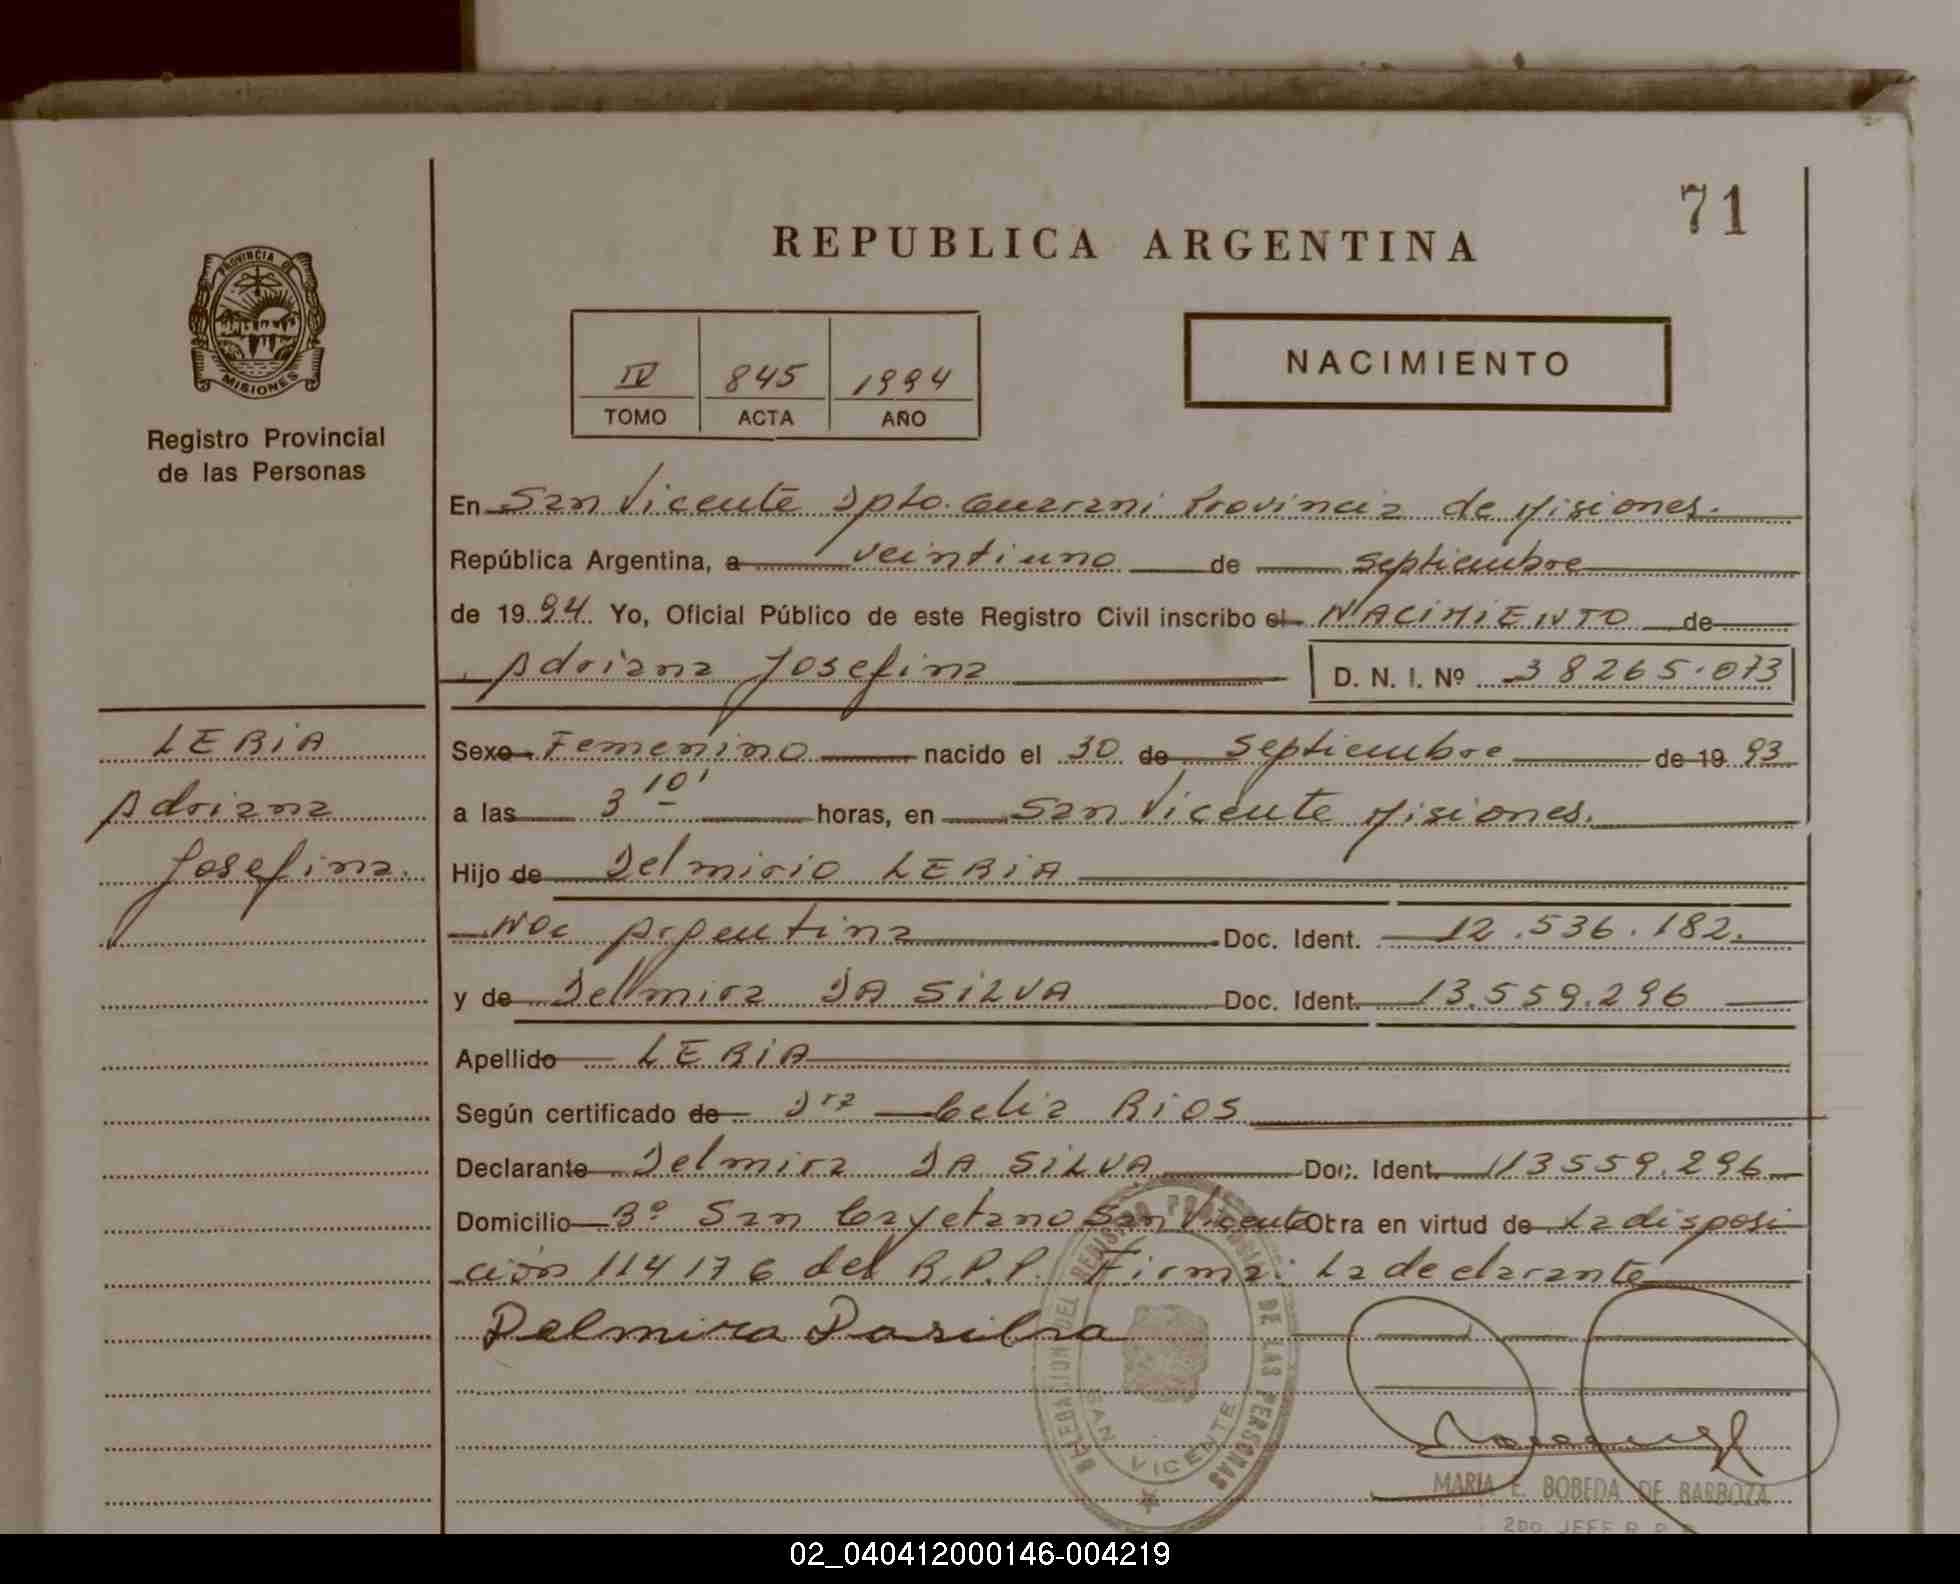 71
REPUBLICA ARGENTINA
PROVINCIA DE
MISIONES
Registro Provincial
de las Personas
IV 845 1994
TOMO ACTA AÑO
NACIMIENTO
En San Vicente Dpto. Guarani Provincia de Misiones.
República Argentina, a veintiuno de septiembre
de 1994. Yo, Oficial Público de este Registro Civil inscribo el NACIMIENTO de
Adriana Josefina D. N. I. Nº 38265.073
LERIA
Adriana
Josefina.
Sexo Femenino nacido el 30 de Septiembre de 1993
a las 3 10' horas, en San Vicente Misiones.
Hijo de Delmirio LERIA
Nac Argentina Doc. Ident. 12.536.182.
y de Delmira DA SILVA Doc. Ident. 13.559.296
Apellido LERIA
Según certificado de Dra Celia RIOS
Declarante Delmira DA SILVA Doc. Ident. 13559.296
Domicilio Bº San Cayetano San Vicente Otra en virtud de La disposi
ción 114176 del R.P.P. Firma: La declarante
Delmira Dasilva
DELEGACION DEL REGISTRO PROVINCIAL DE LAS PERSONAS
SAN VICENTE
MARIA E. BOBEDA DE BARBOZA
2DO. JEFE R. P.
02_040412000146-004219